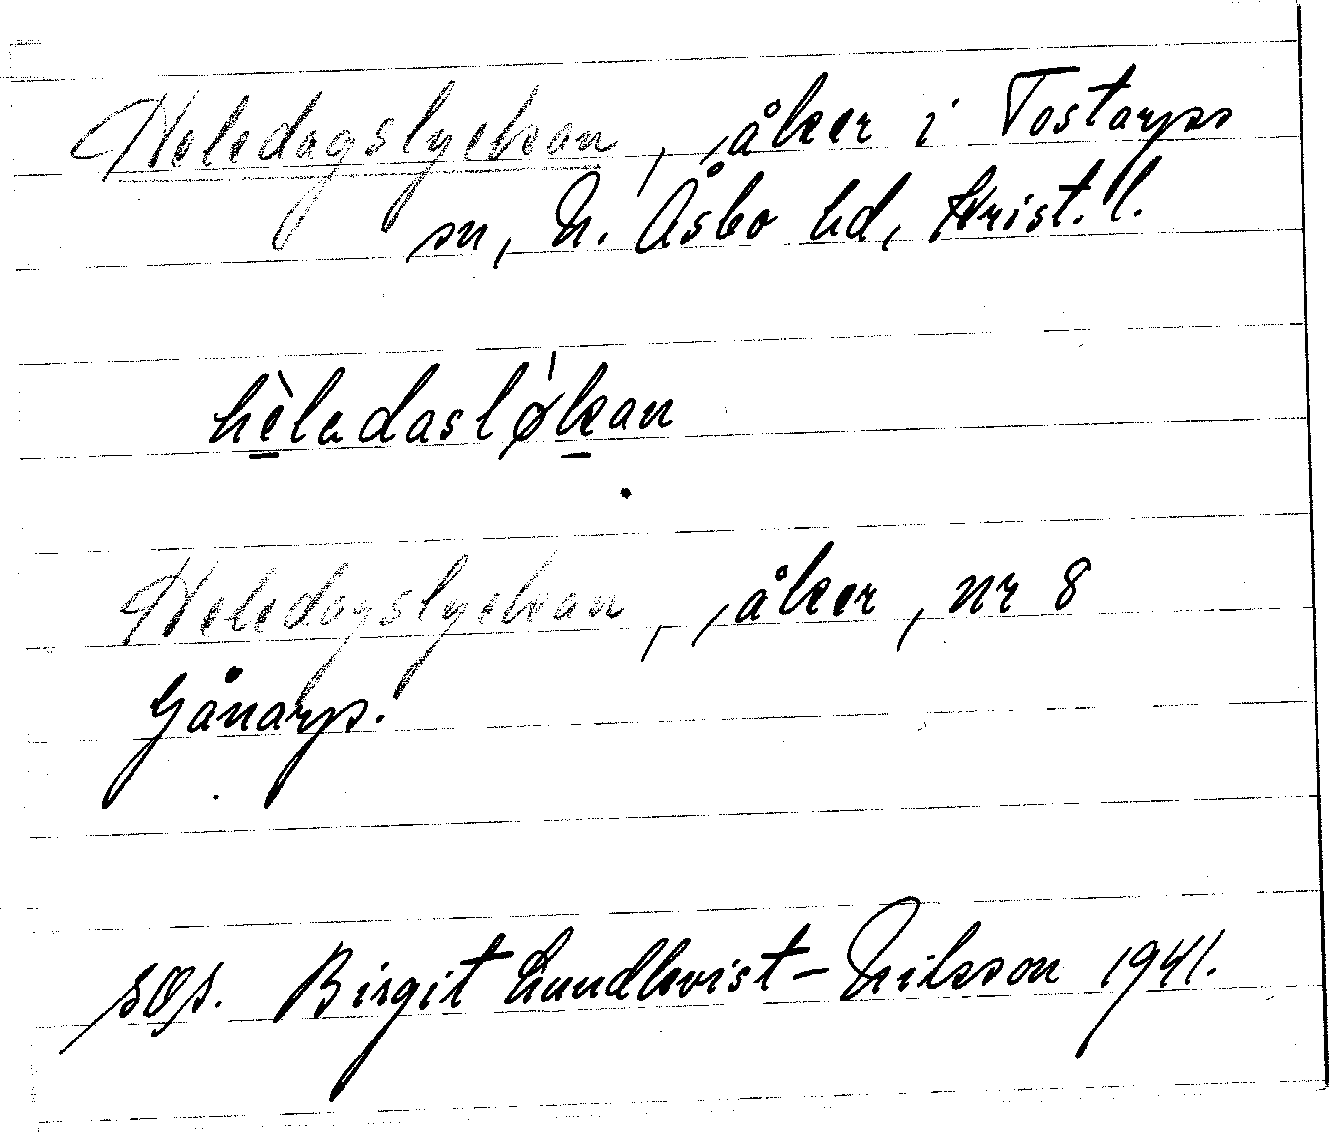 Heledagslyckan, åker i Tostarps
sn, N. Åsbo hd, Krist. l.
hèledasløkan
Heledagslyckan, åker, nr 8
Gånarps.
Birgit Lundkvist-Nilsson 1941.